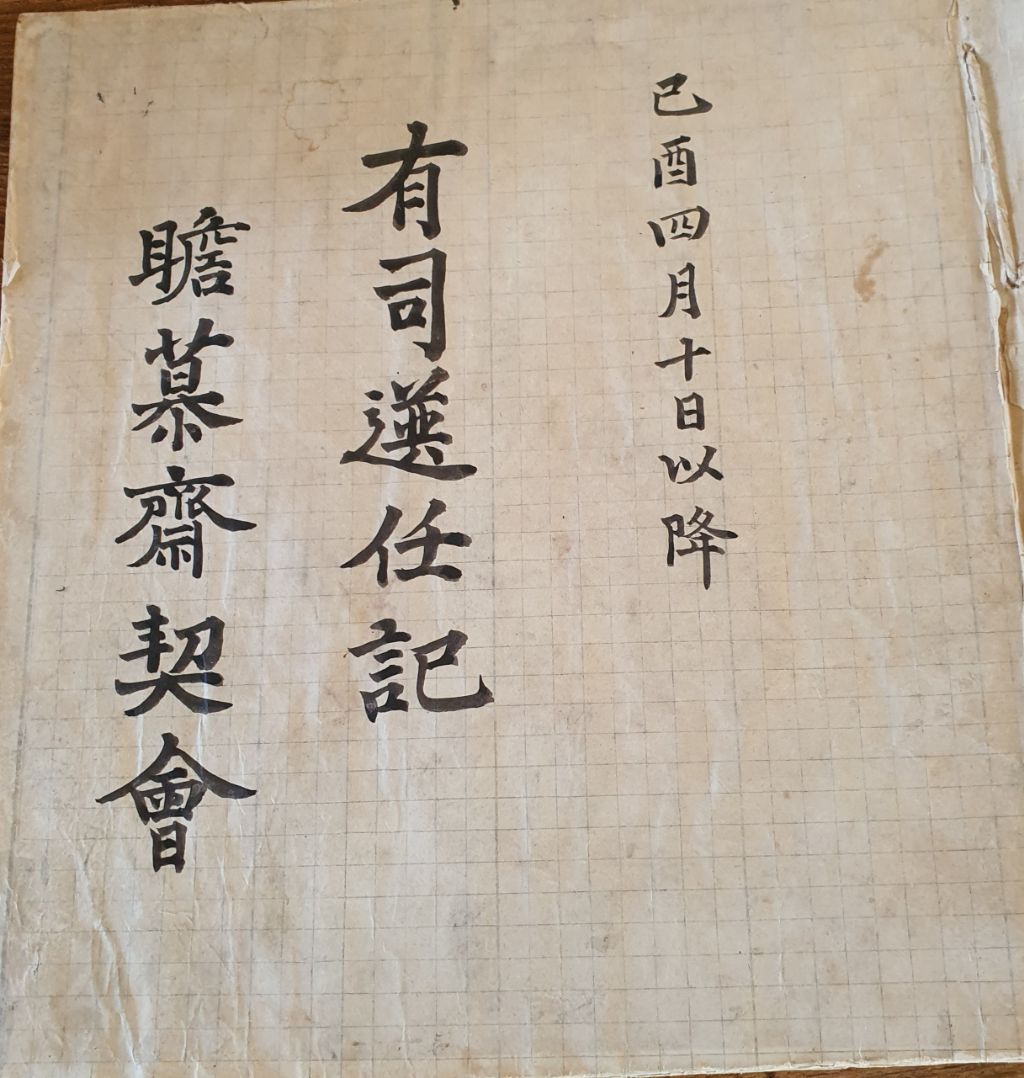 己酉四月十日以降
有司選任記
瞻慕齋契會